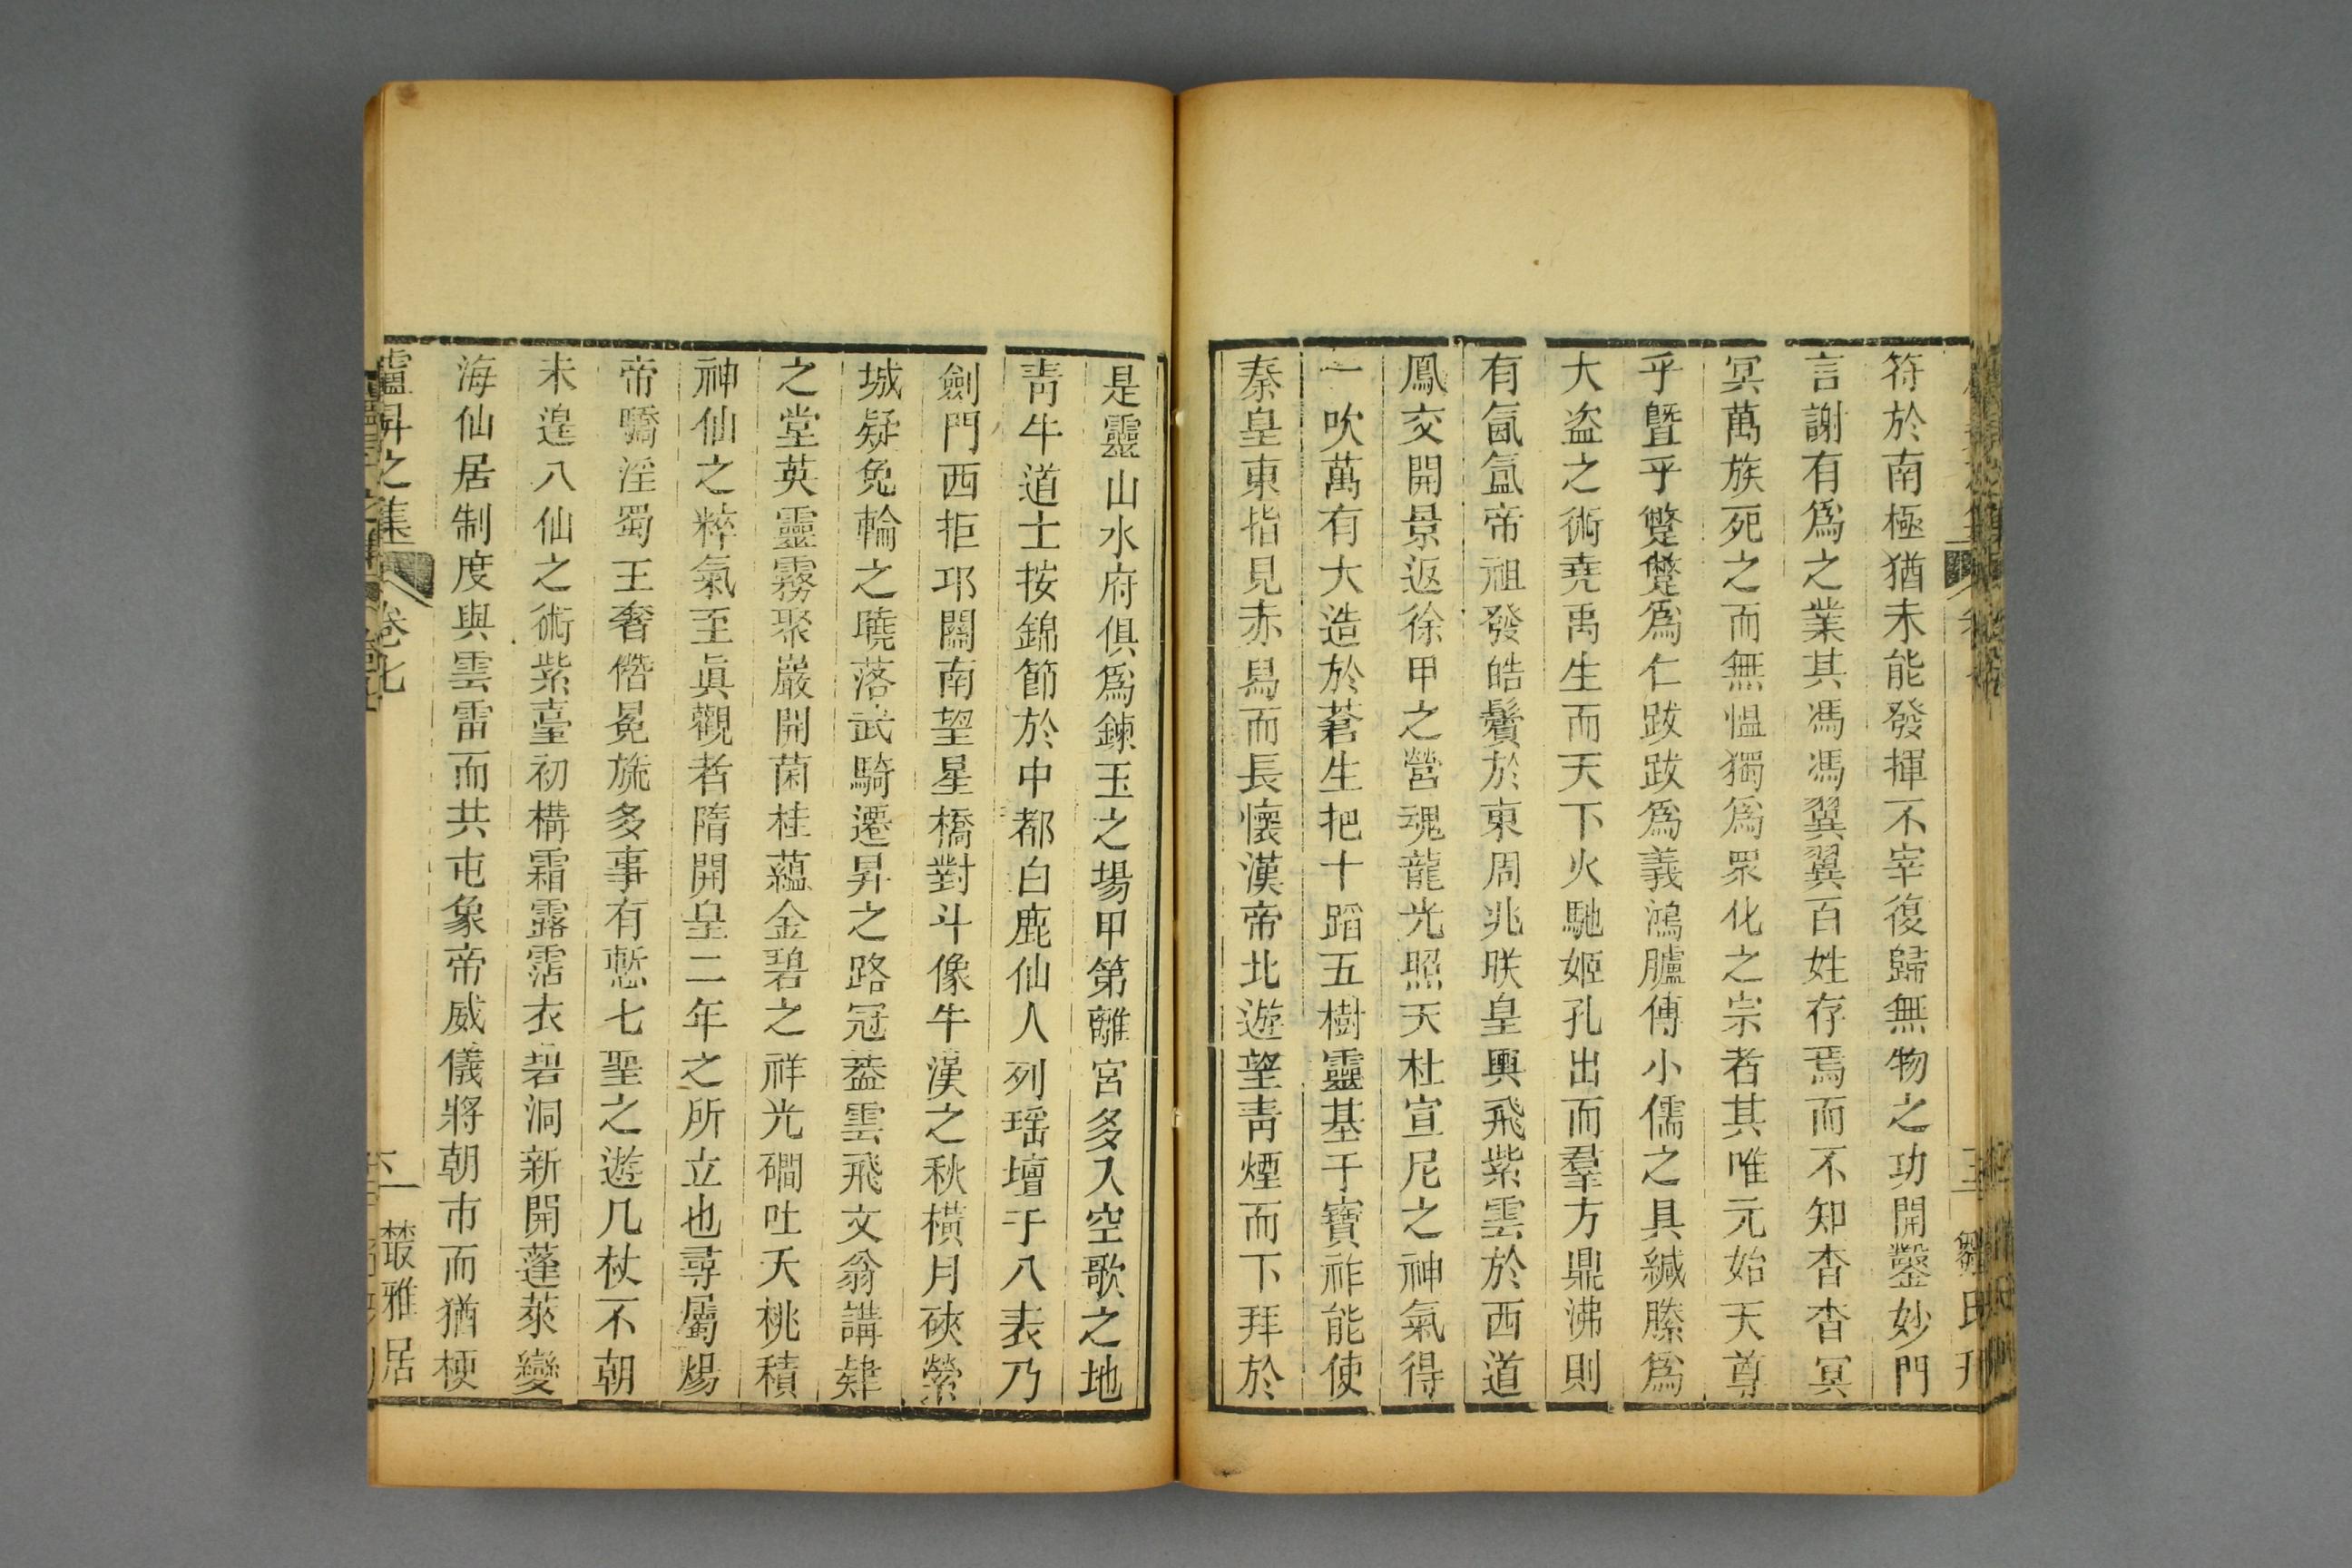 符於南極猶未能發揮不宰復歸無物之功開鑿妙門
言謝有爲之業其馮馮翼翼百姓存焉而不知杳杳冥
冥萬族死之而無慍獨爲眾化之宗者其唯元始天尊
乎曁乎蹩躠爲仁跂跂爲義鴻臚傳小儒之具緘縢爲
大盗之術堯禹生而天下火馳姬孔出而羣方鼎沸則
有氤氳帝祖發皓鬢於東周兆朕皇輿飛紫雲於西道
鳳交開景返徐甲之營魂龍光照天杜宣尼之神氣得
一吹萬有大造於蒼生把十蹈五樹靈基于寶祚能使
秦皇東指見赤舃而長懷漢帝北遊望靑煙而下拜於
是靈山水府俱爲鍊玉之場甲第離宮多入空歌之地
靑牛道士按錦節於中都白鹿仙人列瑶壇于八表乃
劍門西拒邛關南望星橋對斗像牛漢之秋橫月硤縈
城疑兔輪之曉落武騎遷昇之路冠葢雲飛文翁講肄
之堂英靈霧聚巖開菌桂蘊金碧之祥光磵吐夭桃積
神仙之粹氣至眞觀者隋開皇二年之所立也尋屬煬
帝驕淫蜀王奢僭冕旒多事有慙七聖之遊几杖不朝
未遑八仙之術紫臺初構霜露霑衣碧洞新開蓬萊變
海仙居制度與雲雷而共屯象帝威儀將朝市而猶梗
盧昇之集 卷七
叢雅居